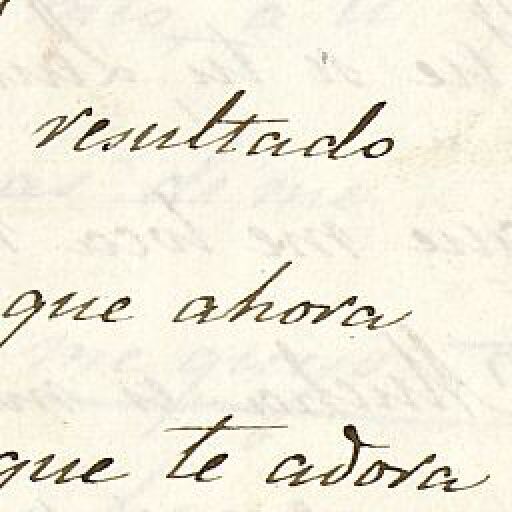 resultado
que ahora
que te adora